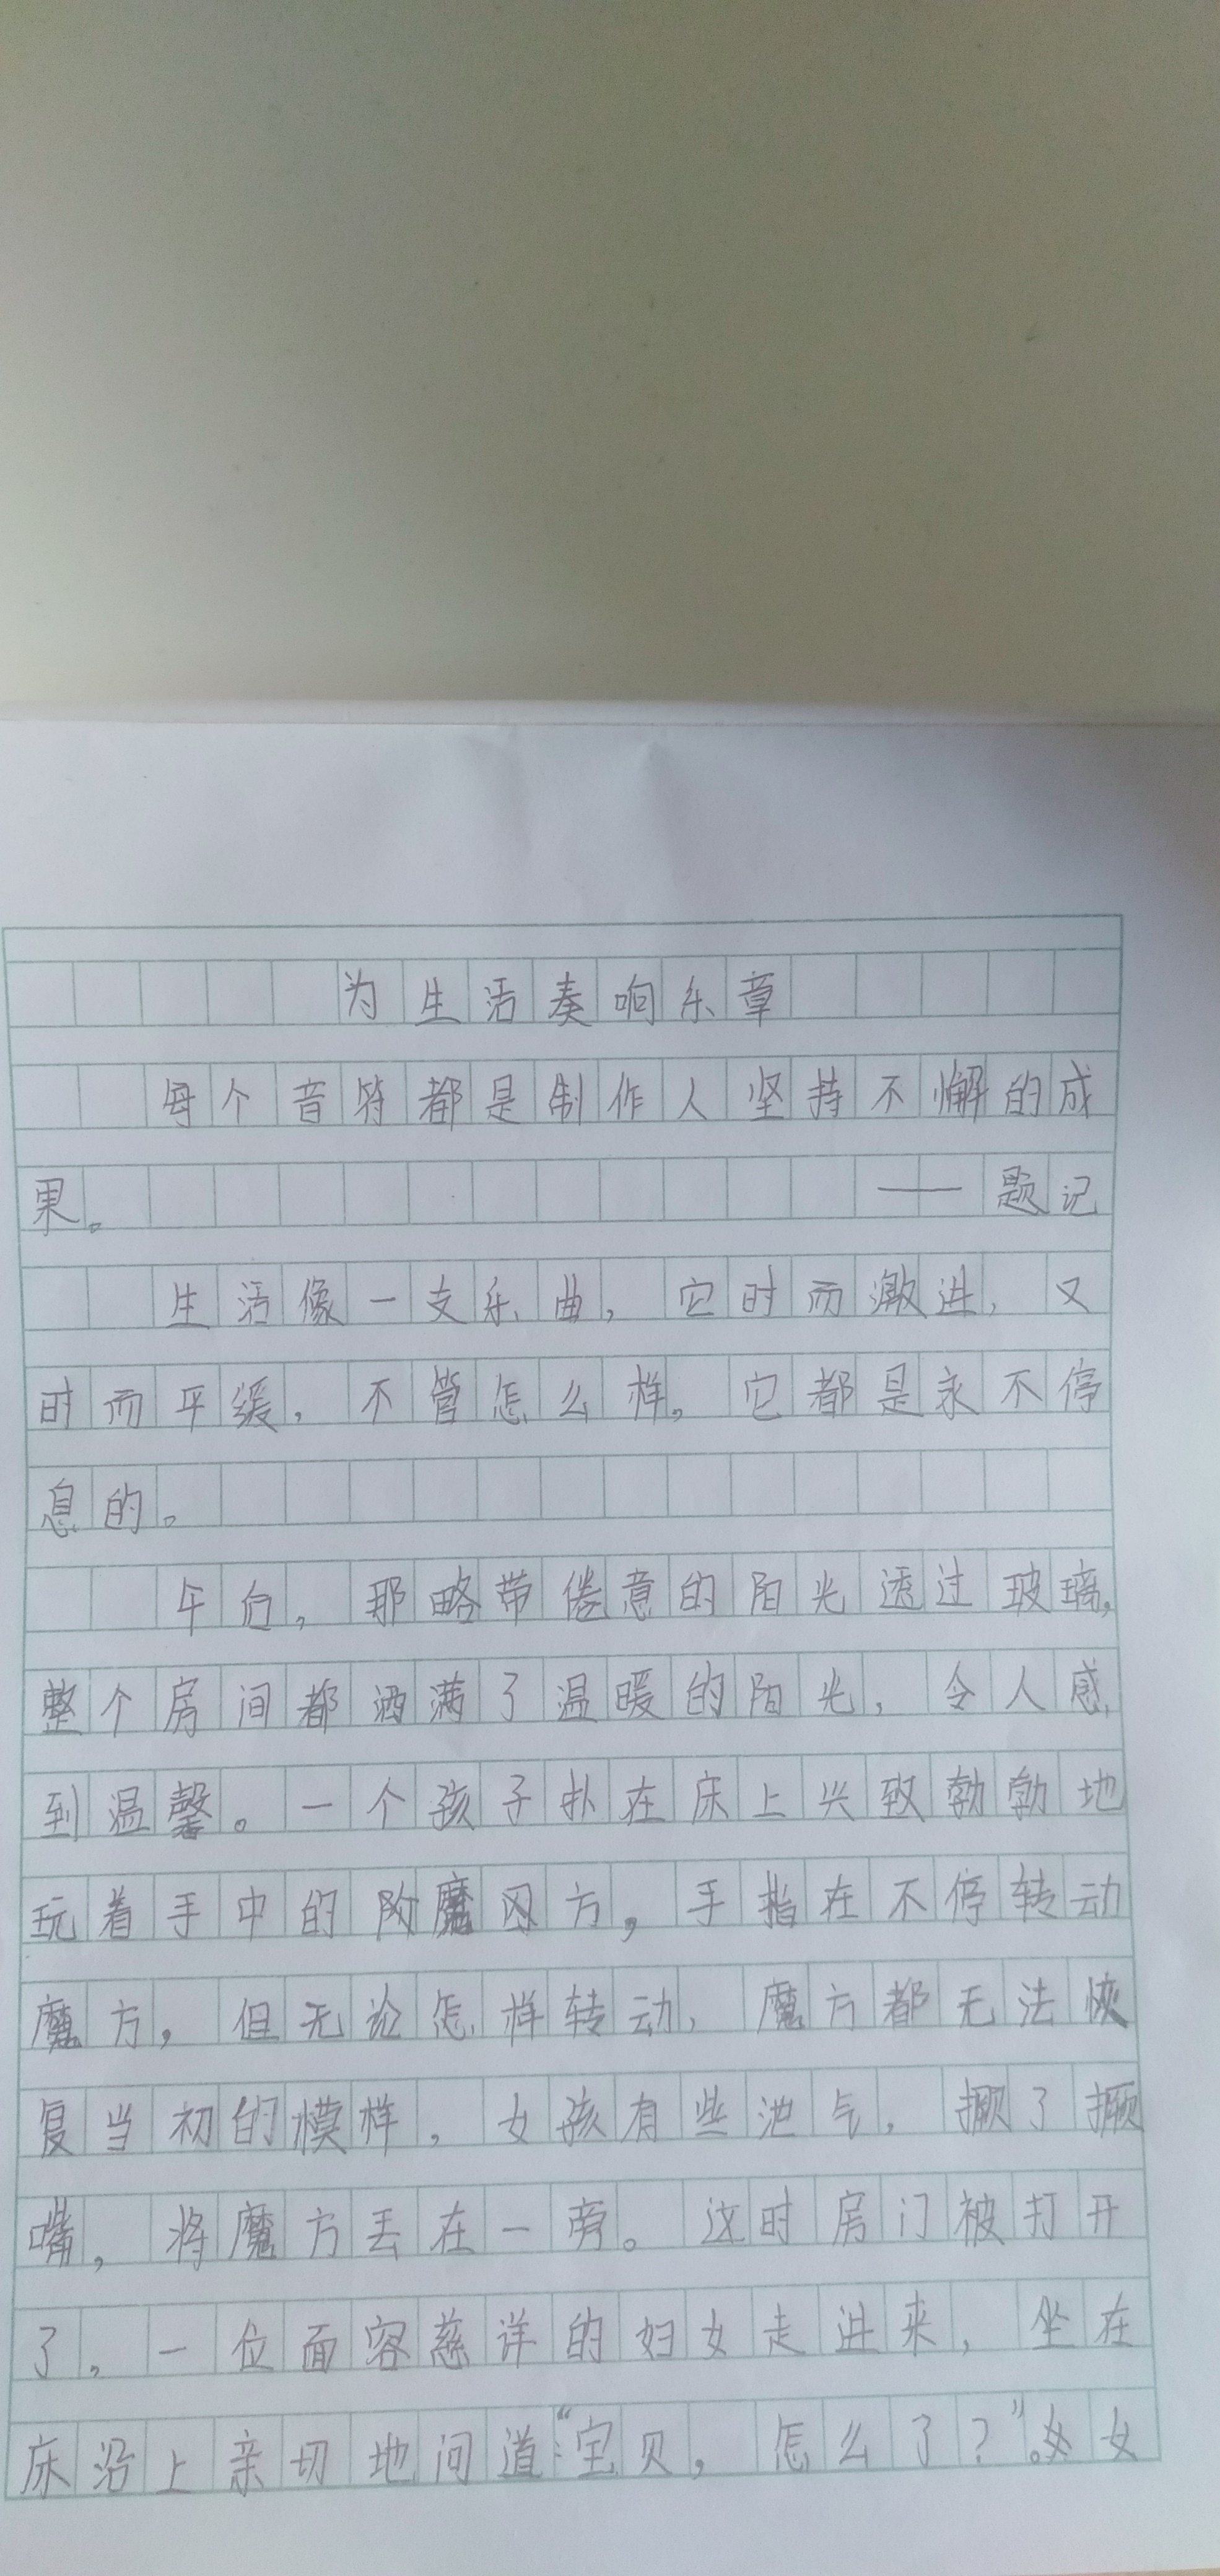 为生活奏响乐章
每个音符都是制作人坚持不懈的成
果。——题记
生活像一支乐曲，它时而激进，又
时而平缓，不管怎么样，它都是永不停
息的。
午后，那略带倦意的阳光透过玻璃，
整个房间都洒满了温暖的阳光，令人感
到温馨。一个孩子趴在床上兴致勃勃地
玩着手中的魔方，手指在不停转动
魔方，但无论怎样转动，魔方都无法恢
复当初的模样，女孩有些泄气，撅了撅
嘴，将魔方丢在一旁。这时房门被打开
了。一位面容慈详的妇女走进来，坐在
床沿上亲切地问道：“宝贝，怎么了？”。女